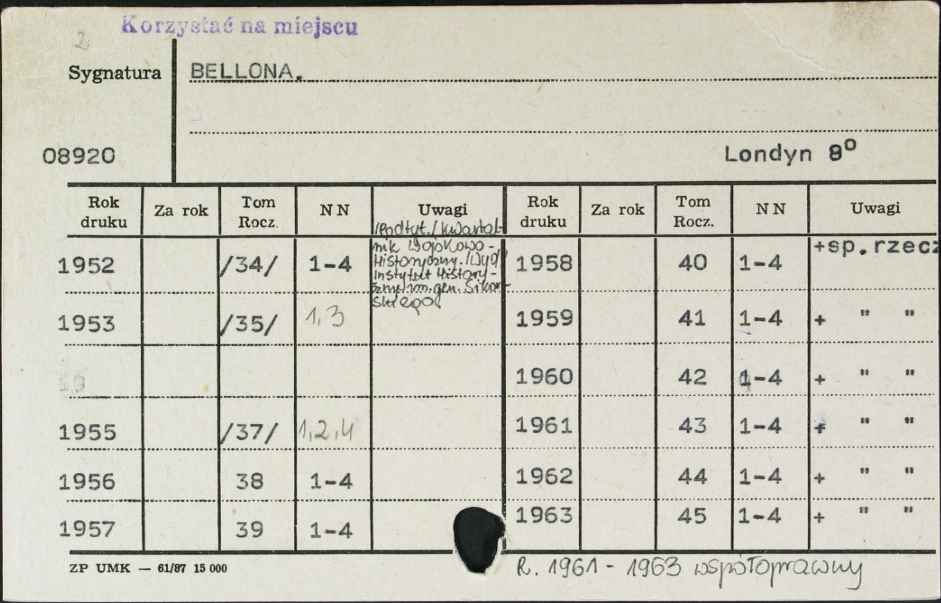 Korzystać na miejscu
2
Sygnatura BELLONA.
08920 Londyn 8°
Rok druku Za rok Tom Rocz. NN Uwagi Rok druku Za rok Tom Rocz. NN Uwagi
/Podtyt./Kwartal-
nik Wojskowo-
Historyczny./Wyd/
Instytut History-
czny im. gen. Sikor-
skiego/
1952 /34/ 1-4 1958 40 1-4 +sp.rzecz
1953 /35/ 1,3 1959 41 1-4 + " "
1960 42 1-4 + " "
1955 /37/ 1,2,4 1961 43 1-4 + " "
1956 38 1-4 1962 44 1-4 + " "
1957 39 1-4 1963 45 1-4 + " "
ZP UMK — 61/87 15 000
R. 1961 - 1963 współoprawny